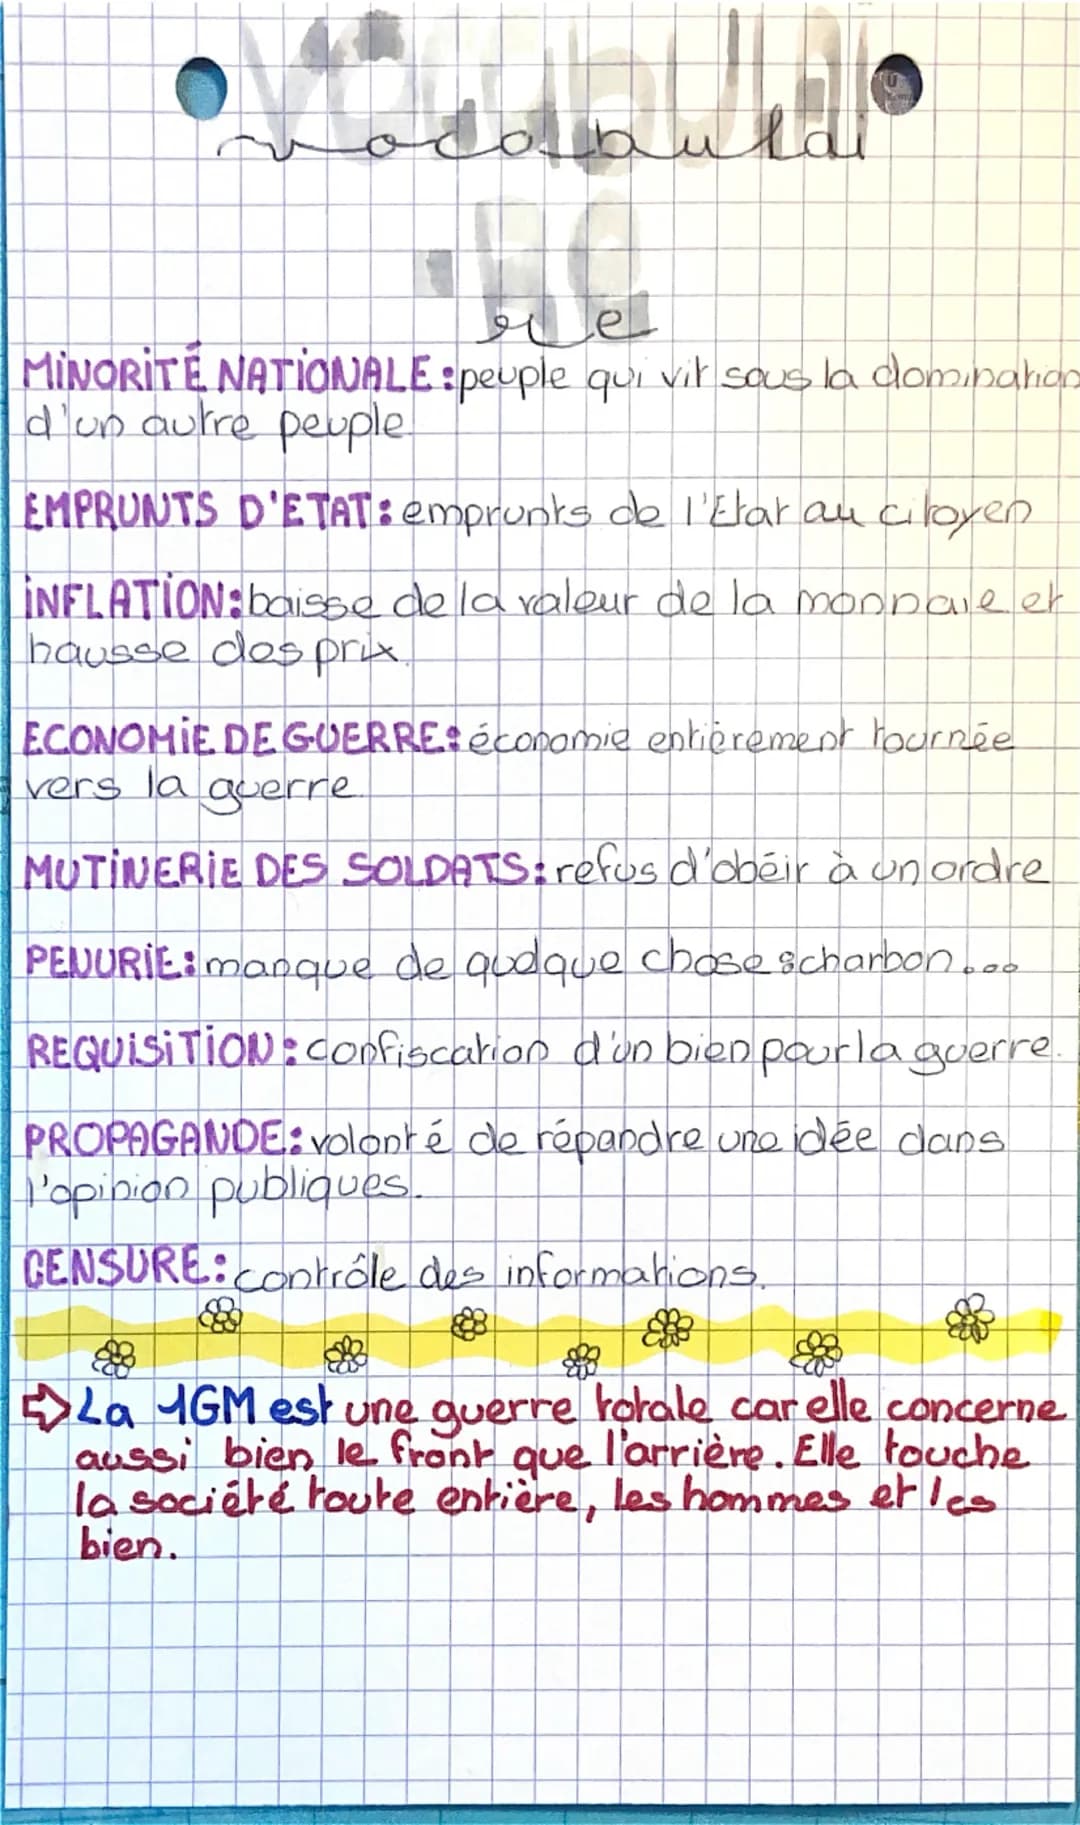 vocabulai
re
MINORITÉ NATIONALE : peuple qui vit sous la domination
d'un autre peuple.
EMPRUNTS D'ETAT : emprunts de l'Etat au citoyen
INFLATION : baisse de la valeur de la monnaie et
hausse des prix.
ECONOMIE DE GUERRE : économie entièrement tournée
vers la guerre.
MUTINERIE DES SOLDATS : refus d'obéir à un ordre
PENURIE : manque de quelque chose : charbon...
REQUISITION : confiscation d'un bien pour la guerre.
PROPAGANDE : volonté de répandre une idée dans
l'opinion publiques.
CENSURE : contrôle des informations.
⇨ La 1GM est une guerre totale car elle concerne
aussi bien le front que l'arrière. Elle touche
la société toute entière, les hommes et les
bien.